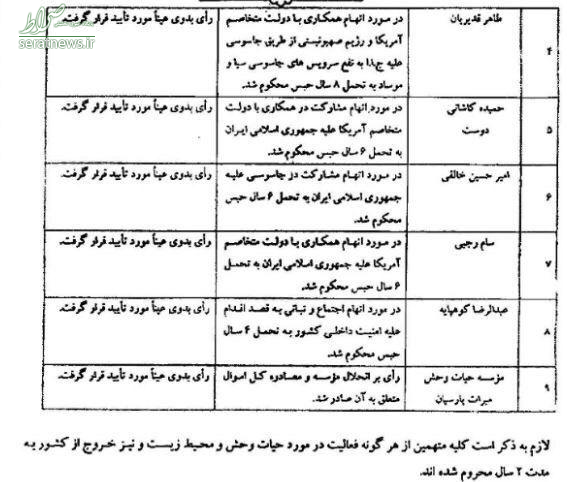 صراط
seratnews.ir
۴
طاهر قدیریان
در مورد اتهام همکاری با دولت متخاصم
آمریکا و رژیم صهیونیستی از طریق جاسوسی
علیه ج.ا.ا به نفع سرویس های جاسوسی سیا و
موساد به تحمل ۸ سال حبس محکوم شد.
رأی بدوی عیناً مورد تأیید قرار گرفت.
۵
حمیده کاشانی
دوست
در مورد اتهام مشارکت در همکاری با دولت
متخاصم آمریکا علیه جمهوری اسلامی ایران
به تحمل ۶ سال حبس محکوم شد.
رأی بدوی عیناً مورد تأیید قرار گرفت.
۶
امیر حسین خالقی
در مورد اتهام مشارکت در جاسوسی علیه
جمهوری اسلامی ایران به تحمل ۶ سال حبس
محکوم شد.
رأی بدوی عیناً مورد تأیید قرار گرفت.
۷
سام رجبی
در مورد اتهام همکاری با دولت متخاصم
آمریکا علیه جمهوری اسلامی ایران به تحمل
۶ سال حبس محکوم شد.
رأی بدوی عیناً مورد تأیید قرار گرفت.
۸
عبدالرضا کوهپایه
در مورد اتهام اجتماع و تبانی به قصد اقدام
علیه امنیت داخلی کشور به تحمل ۴ سال
حبس محکوم شد.
رأی بدوی عیناً مورد تأیید قرار گرفت.
۹
مؤسسه حیات وحش
میراث پارسیان
رأی بر انحلال مؤسسه و مصادره کل اموال
متعلق به آن صادر شد.
رأی بدوی عیناً مورد تأیید قرار گرفت.
لازم به ذکر است کلیه متهمین از هر گونه فعالیت در مورد حیات وحش و محیط زیست و نیز خروج از کشور به
مدت ۲ سال محروم شده اند.